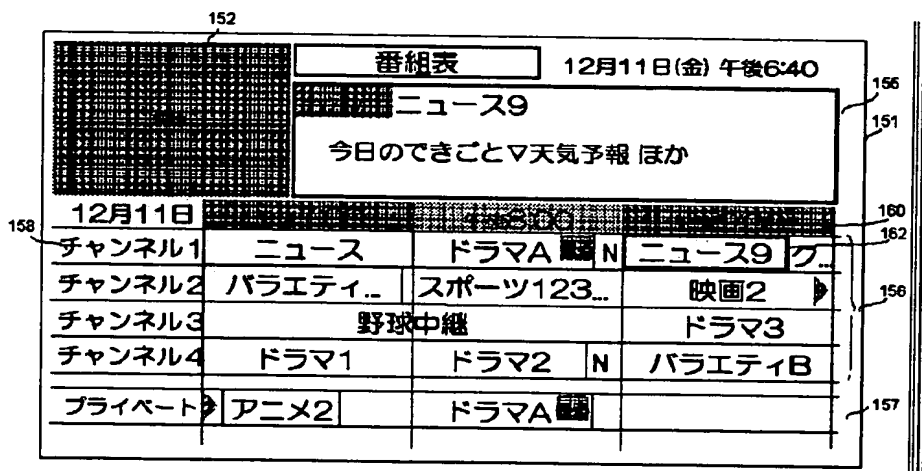 152
番組表 12月11日(金) 午後6:40
ニュース9
156
151
今日のできごと▽天気予報 ほか
12月11日
160
158 チャンネル1 ニュース ドラマA N ニュース9 グ... 162
チャンネル2 バラエティ... スポーツ123... 映画2
156
チャンネル3 野球中継 ドラマ3
チャンネル4 ドラマ1 ドラマ2 N バラエティB
プライベート アニメ2 ドラマA
157